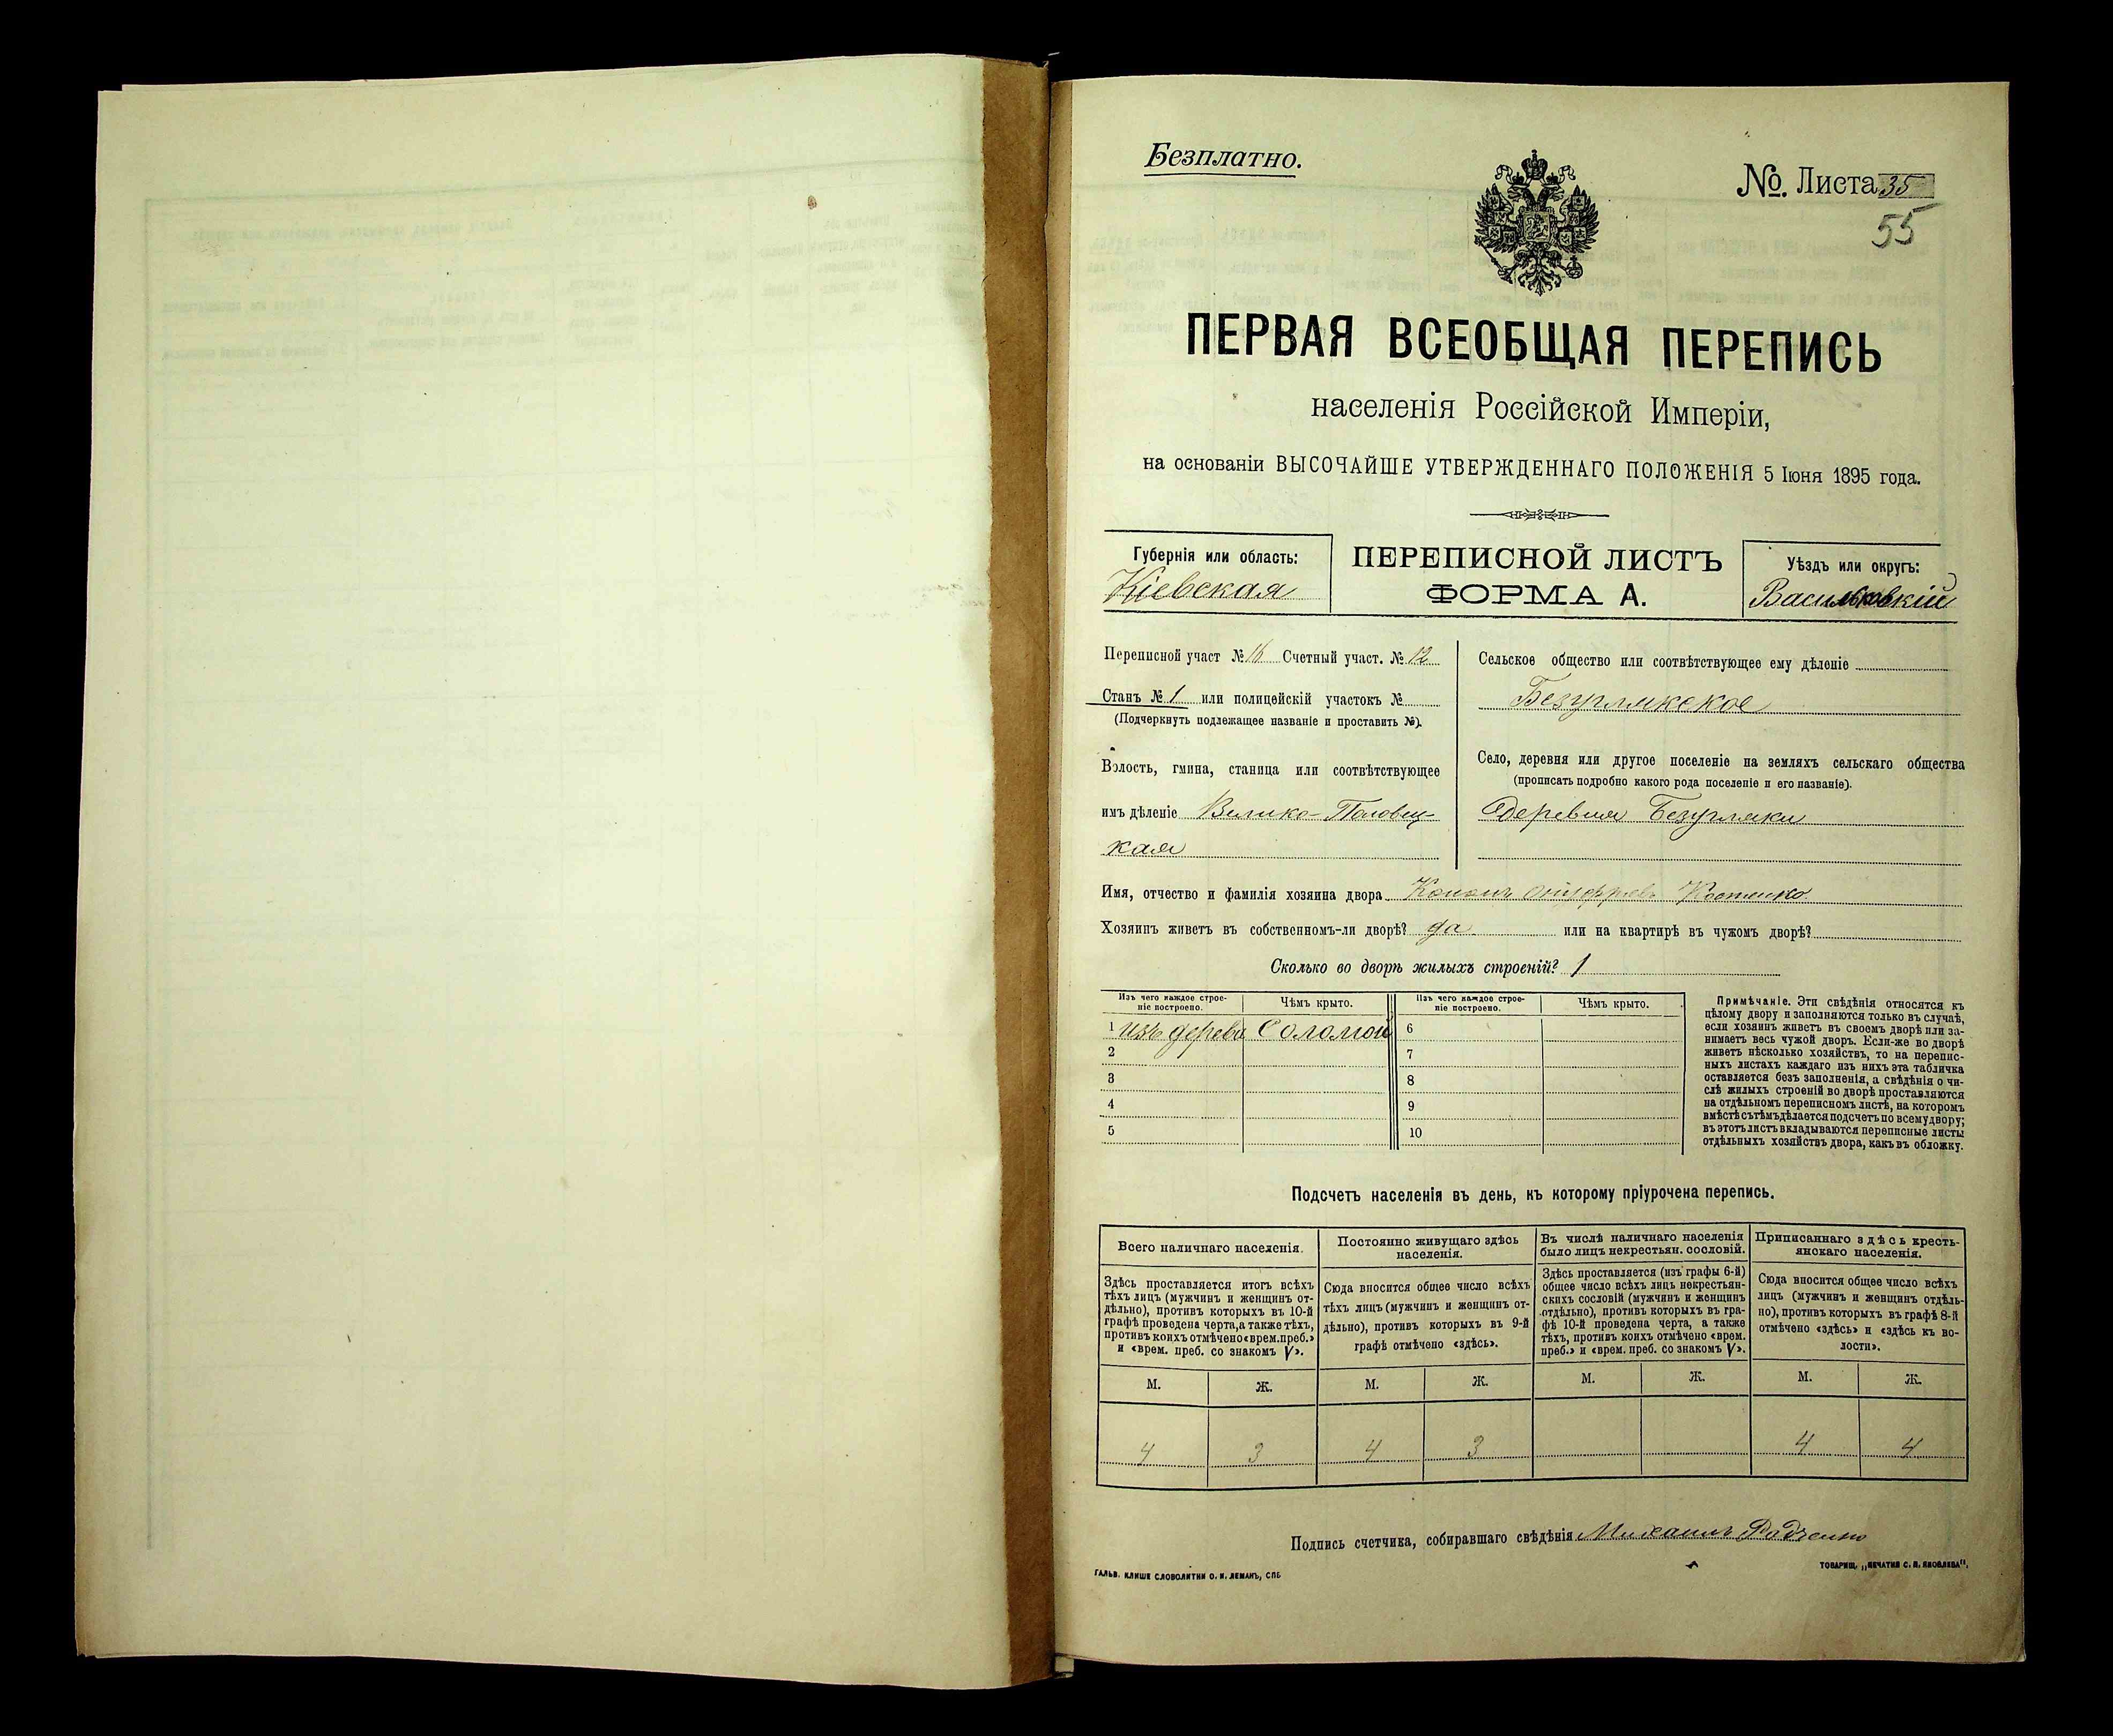 Безплатно.
№. Листа 35
55
ПЕРВАЯ ВСЕОБЩАЯ ПЕРЕПИСЬ
населенія Россійской Имперіи,
на основаніи ВЫСОЧАЙШЕ УТВЕРЖДЕННАГО ПОЛОЖЕНІЯ 5 Іюня 1895 года.
Губернія или область:
Кіевская
ПЕРЕПИСНОЙ ЛИСТЪ
ФОРМА А.
Уѣздъ или округъ:
Васильковскій
Переписной участ № 16 Счетный участ. № 12
Станъ № 1 или полицейскій участокъ №
(Подчеркнуть подлежащее названіе и проставить №).
Волость, гмина, станица или соотвѣтствующее
имъ дѣленіе Велико-Половец-
кая
Сельское общество или соотвѣтствующее ему дѣленіе
Безуглякское
Село, деревня или другое поселеніе на земляхъ сельскаго общества
(прописать подробно какого рода поселеніе и его названіе).
деревня Безугляки
Имя, отчество и фамилія хозяина двора Кононъ Онуфріевъ Костенко
Хозяинъ живетъ въ собственномъ-ли дворѣ? да или на квартирѣ въ чужомъ дворѣ?
Сколько во дворѣ жилыхъ строеній? 1
Изъ чего каждое строе-
ніе построено.
Чѣмъ крыто.
Изъ чего каждое строе-
ніе построено.
Чѣмъ крыто.
1 изъ дерева Соломой 6
2 7
3 8
4 9
5 10
Примѣчаніе. Эти свѣдѣнія относятся къ
цѣлому двору и заполняются только въ случаѣ,
если хозяинъ живетъ въ своемъ дворѣ или за-
нимаетъ весь чужой дворъ. Если-же во дворѣ
живетъ нѣсколько хозяйствъ, то на перепис-
ныхъ листахъ каждаго изъ нихъ эта табличка
оставляется безъ заполненія, а свѣдѣнія о чи-
слѣ жилыхъ строеній во дворѣ проставляются
на отдѣльномъ переписномъ листѣ, на которомъ
вмѣстѣ съ тѣмъ дѣлается подсчетъ по всему двору;
въ этотъ листъ вкладываются переписные листы
отдѣльныхъ хозяйствъ двора, какъ въ обложку.
Подсчетъ населенія въ день, къ которому пріурочена перепись.
Всего наличнаго населенія.
Здѣсь проставляется итогъ всѣхъ
тѣхъ лицъ (мужчинъ и женщинъ от-
дѣльно), противъ которыхъ въ 10-й
графѣ проведена черта, а также тѣхъ,
противъ коихъ отмѣчено «врем. преб.»
и «врем. преб. со знакомъ V».
Постоянно живущаго здѣсь
населенія.
Сюда вносится общее число всѣхъ
тѣхъ лицъ (мужчинъ и женщинъ от-
дѣльно), противъ которыхъ въ 9-й
графѣ отмѣчено «здѣсь».
Въ числѣ наличнаго населенія
было лицъ некрестьян. сословій.
Здѣсь проставляется (изъ графы 6-й)
общее число всѣхъ лицъ некрестьян-
скихъ сословій (мужчинъ и женщинъ
отдѣльно), противъ которыхъ въ гра-
фѣ 10-й проведена черта, а также
тѣхъ, противъ коихъ отмѣчено «врем.
преб.» и «врем. преб. со знакомъ V».
Приписаннаго здѣсь кресть-
янскаго населенія.
Сюда вносится общее число всѣхъ
лицъ (мужчинъ и женщинъ отдѣль-
но), противъ которыхъ въ графѣ 8-й
отмѣчено «здѣсь» и «здѣсь къ во-
лости».
М. Ж. М. Ж. М. Ж. М. Ж.
4 3 4 3 4 4
Подпись счетчика, собиравшаго свѣдѣнія Михаилъ Радзенко
ГАЛЬВ. КЛИШЕ СЛОВОЛИТНИ О. И. ЛЕМАНЪ, СПБ
ТОВАРИЩ. „ПЕЧАТНЯ С. П. ЯКОВЛЕВА".